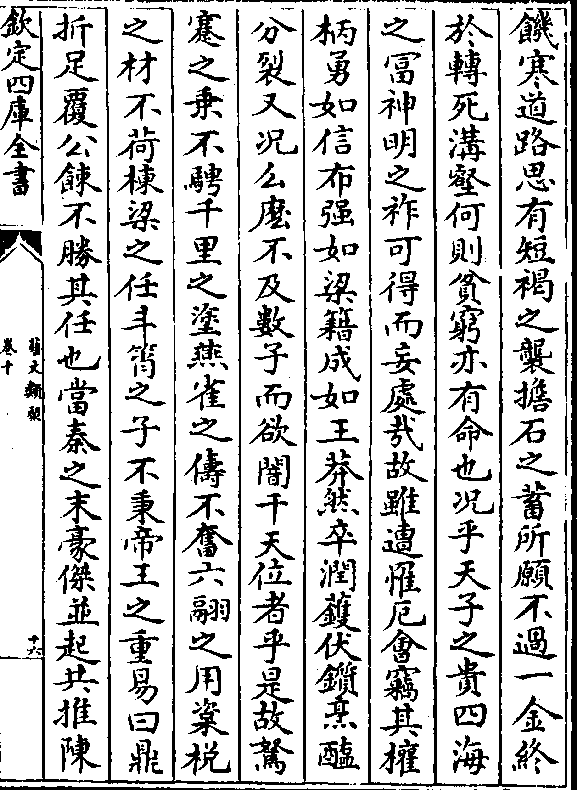 饑寒道路思有短褐之襲擔石之蓄所願不過一金終
於轉死溝壑何則貧窮亦有命也况乎天子之貴四海
之冨神明之祚可得而妄處㢤故雖遭懼厄會竊其權
柄勇如信布强如梁籍成如王莽然卒潤鑊伏鑕烹醢
分裂又况么麽不及數子而欲闇干天位者乎是故駑
蹇之乗不騁千里之塗燕雀之儔不奮六翮之用楶梲
之材不荷棟梁之任斗筲之子不秉帝王之重易曰鼎
折足覆公餗不勝其任也當秦之末豪傑並起共推陳
欽定四庫全書
藝文類聚
卷十
十六